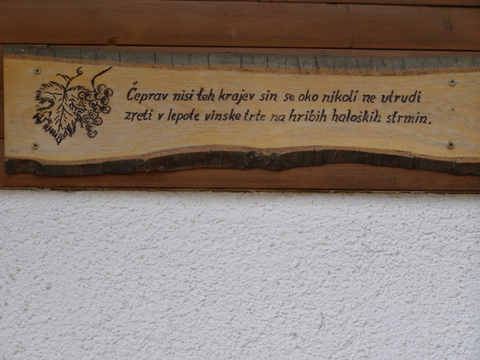 Čeprav nisi teh krajev sin se oko nikoli ne utrudi
zreti v lepote vinske trte na hribih haloških strmin.